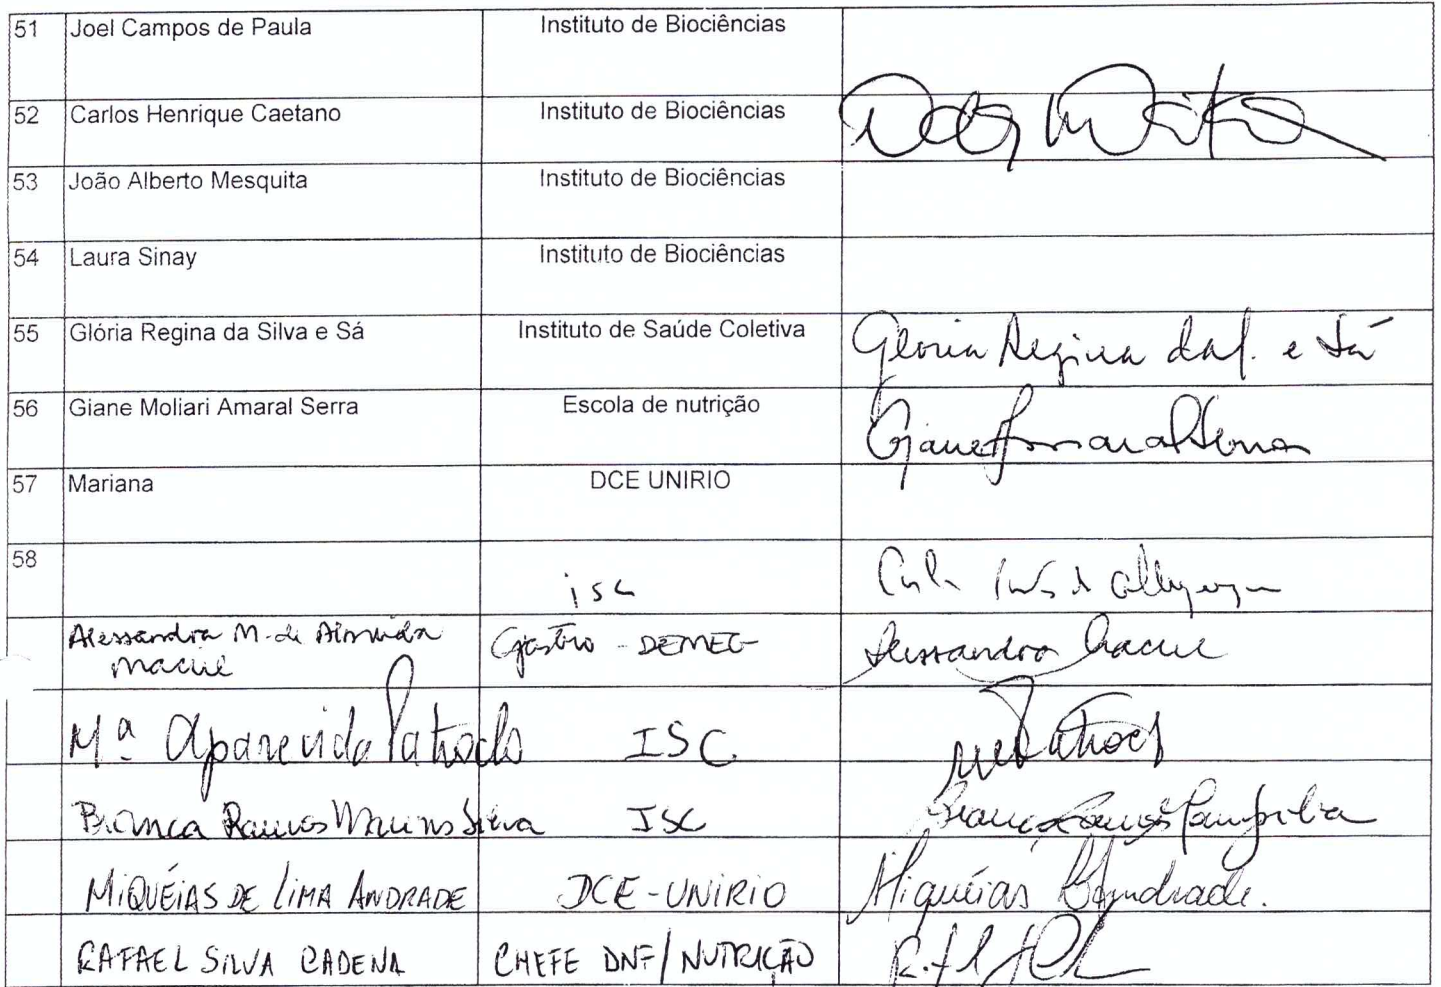 51 Joel Campos de Paula Instituto de Biociências
52 Carlos Henrique Caetano Instituto de Biociências
53 João Alberto Mesquita Instituto de Biociências
54 Laura Sinay Instituto de Biociências
55 Glória Regina da Silva e Sá Instituto de Saúde Coletiva Gloria Regina da S. e Sá
56 Giane Moliari Amaral Serra Escola de nutrição Giane Amaral Serra
57 Mariana DCE UNIRIO
58 isc
Alessandra M. de Almeida Gastro - DEMEG Alessandra Maciel
Maciel
Mª Aparecida Patroclo ISC.
Bianca Ramos Marins Silva ISC Bianca Ramos
MIQUÉIAS DE LIMA ANDRADE DCE-UNIRIO Miquéias Andrade.
RAFAEL SILVA CADENA CHEFE DNF/NUTRIÇÃO